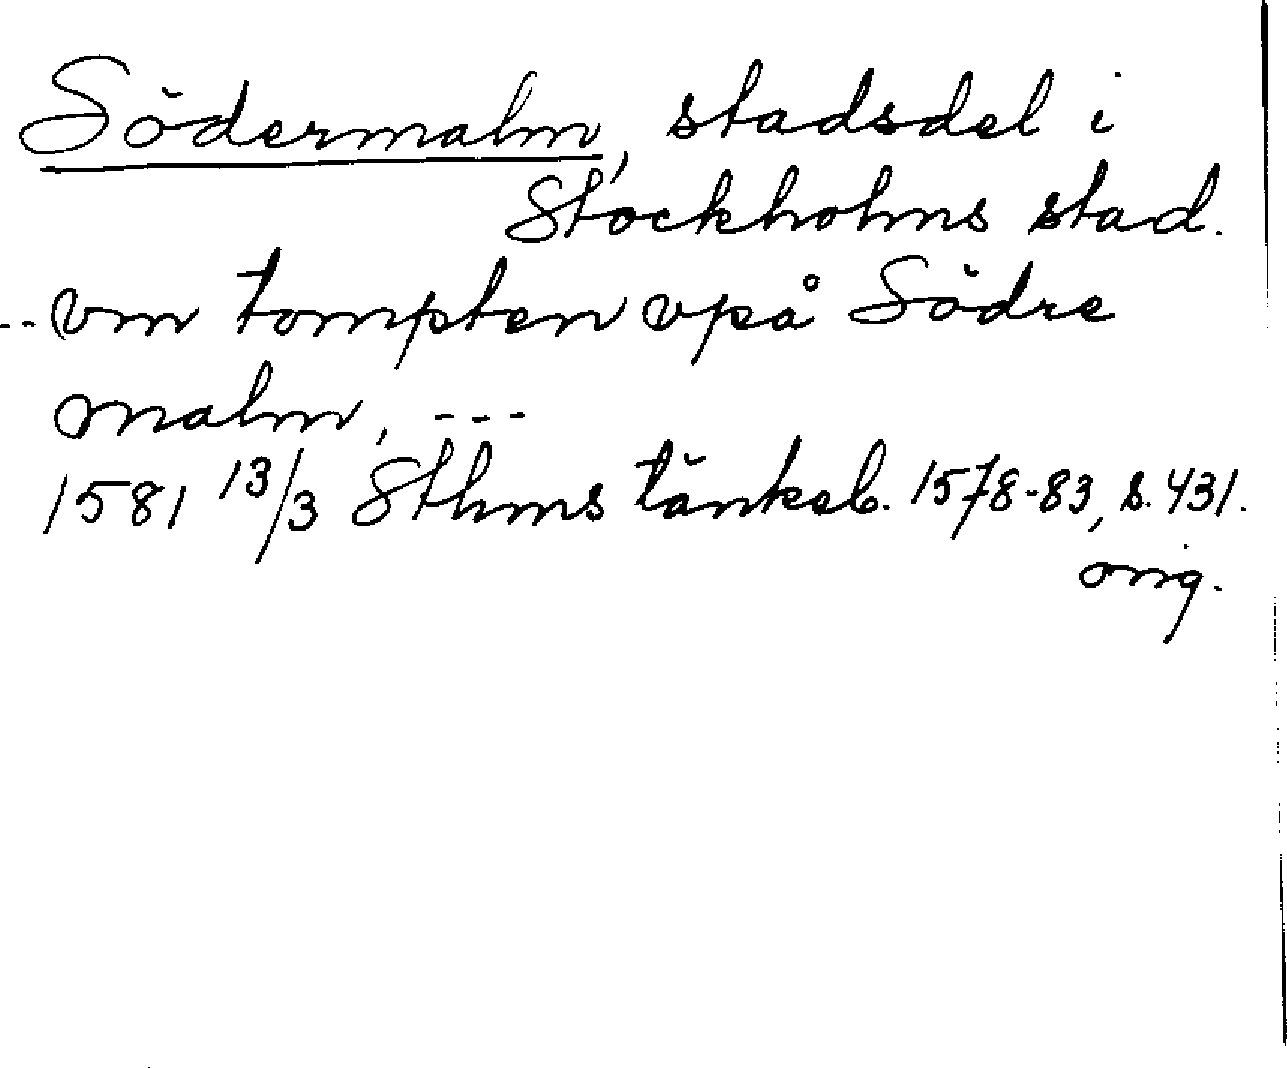 Södermalm, stadsdel i
Stockholms stad.
-- vm tompten vpå Södre
malm, ---
1581 13/3 Sthms tänkeb. 1578-83, s. 431.
orig.